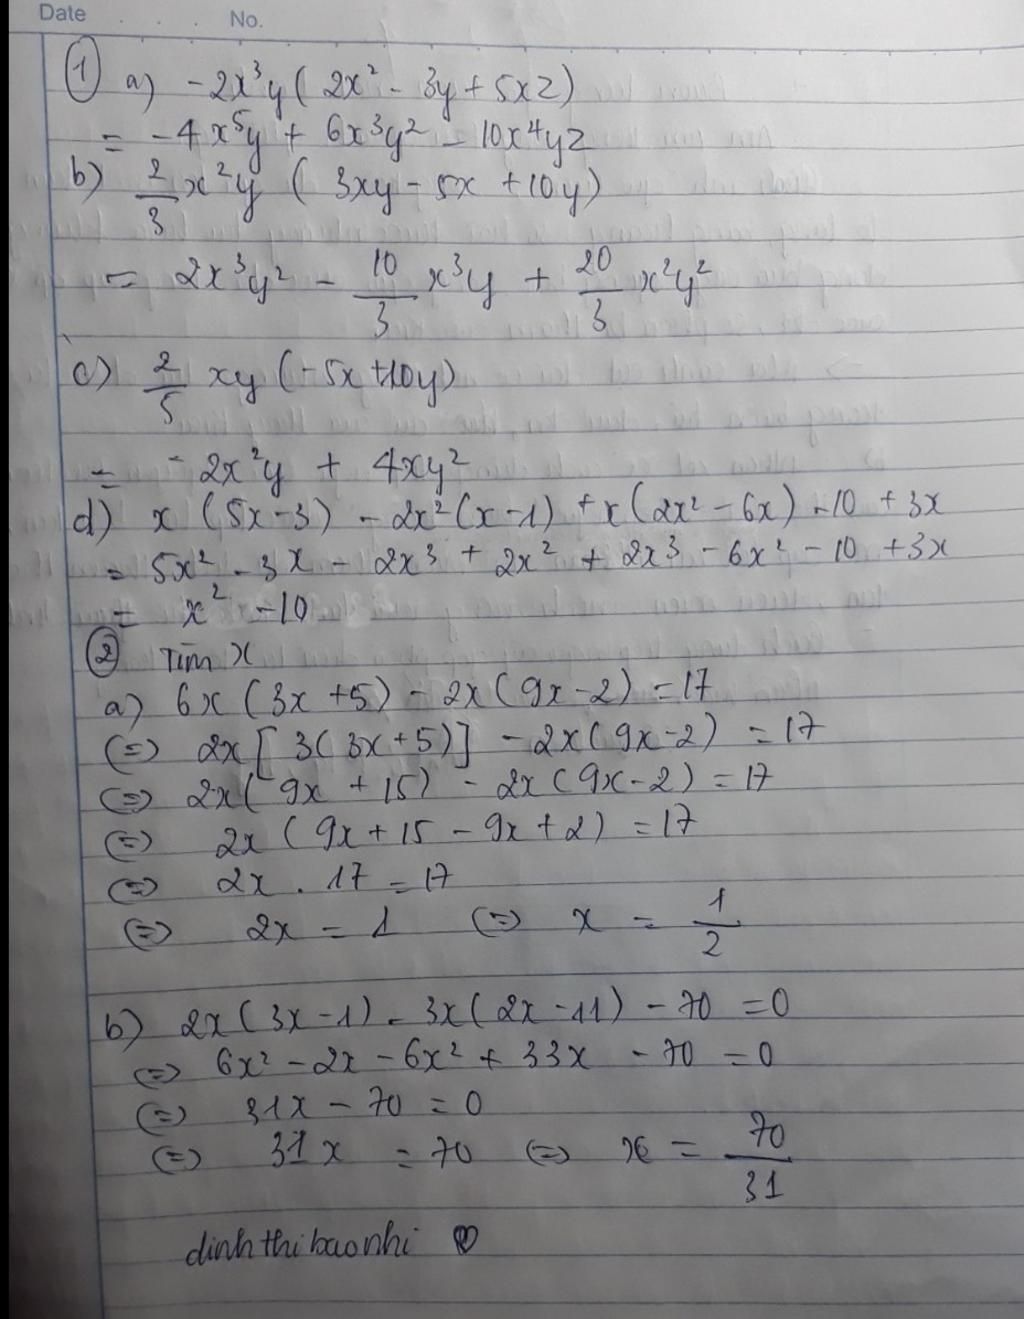 Date . . . No.
① a) -2x³y ( 2x² - 3y + 5xz)
= -4x⁵y + 6x³y² - 10x⁴yz
b) 2/3 x²y ( 3xy - 5x + 10y)
= 2x³y² - 10/3 x³y + 20/3 x²y²
c) 2/5 xy (-5x+10y)
= -2x²y + 4xy²
d) x (5x-3) - 2x²(x-1) + x(2x² - 6x) - 10 + 3x
= 5x² - 3x - 2x³ + 2x² + 2x³ - 6x² - 10 + 3x
= x² - 10
② Tìm x
a) 6x (3x +5) - 2x (9x-2) = 17
(=) 2x [ 3( 3x+5)] - 2x(9x-2) = 17
(=) 2x( 9x + 15) - 2x (9x-2) = 17
(=) 2x ( 9x+15 - 9x+2) = 17
(=) 2x . 17 = 17
(=) 2x = 1 (=) x = 1/2
b) 2x (3x-1) - 3x(2x-11) - 70 = 0
(=) 6x² - 2x - 6x² + 33x - 70 = 0
(=) 31x - 70 = 0
(=) 31x = 70 (=) x = 70/31
dinh thi bao nhi ♡